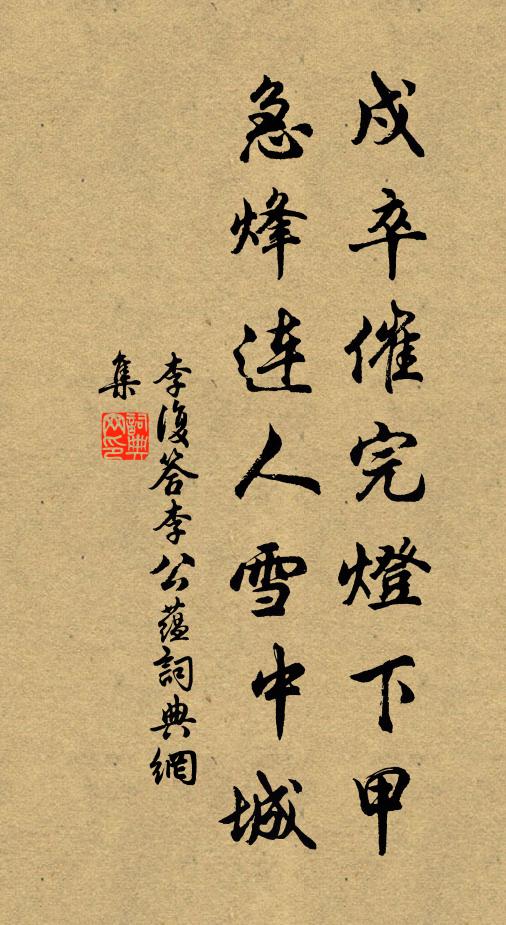 戍卒催完燈下甲
急烽連人雪中城
李復答李公蘊詞典網
集
詞典網印